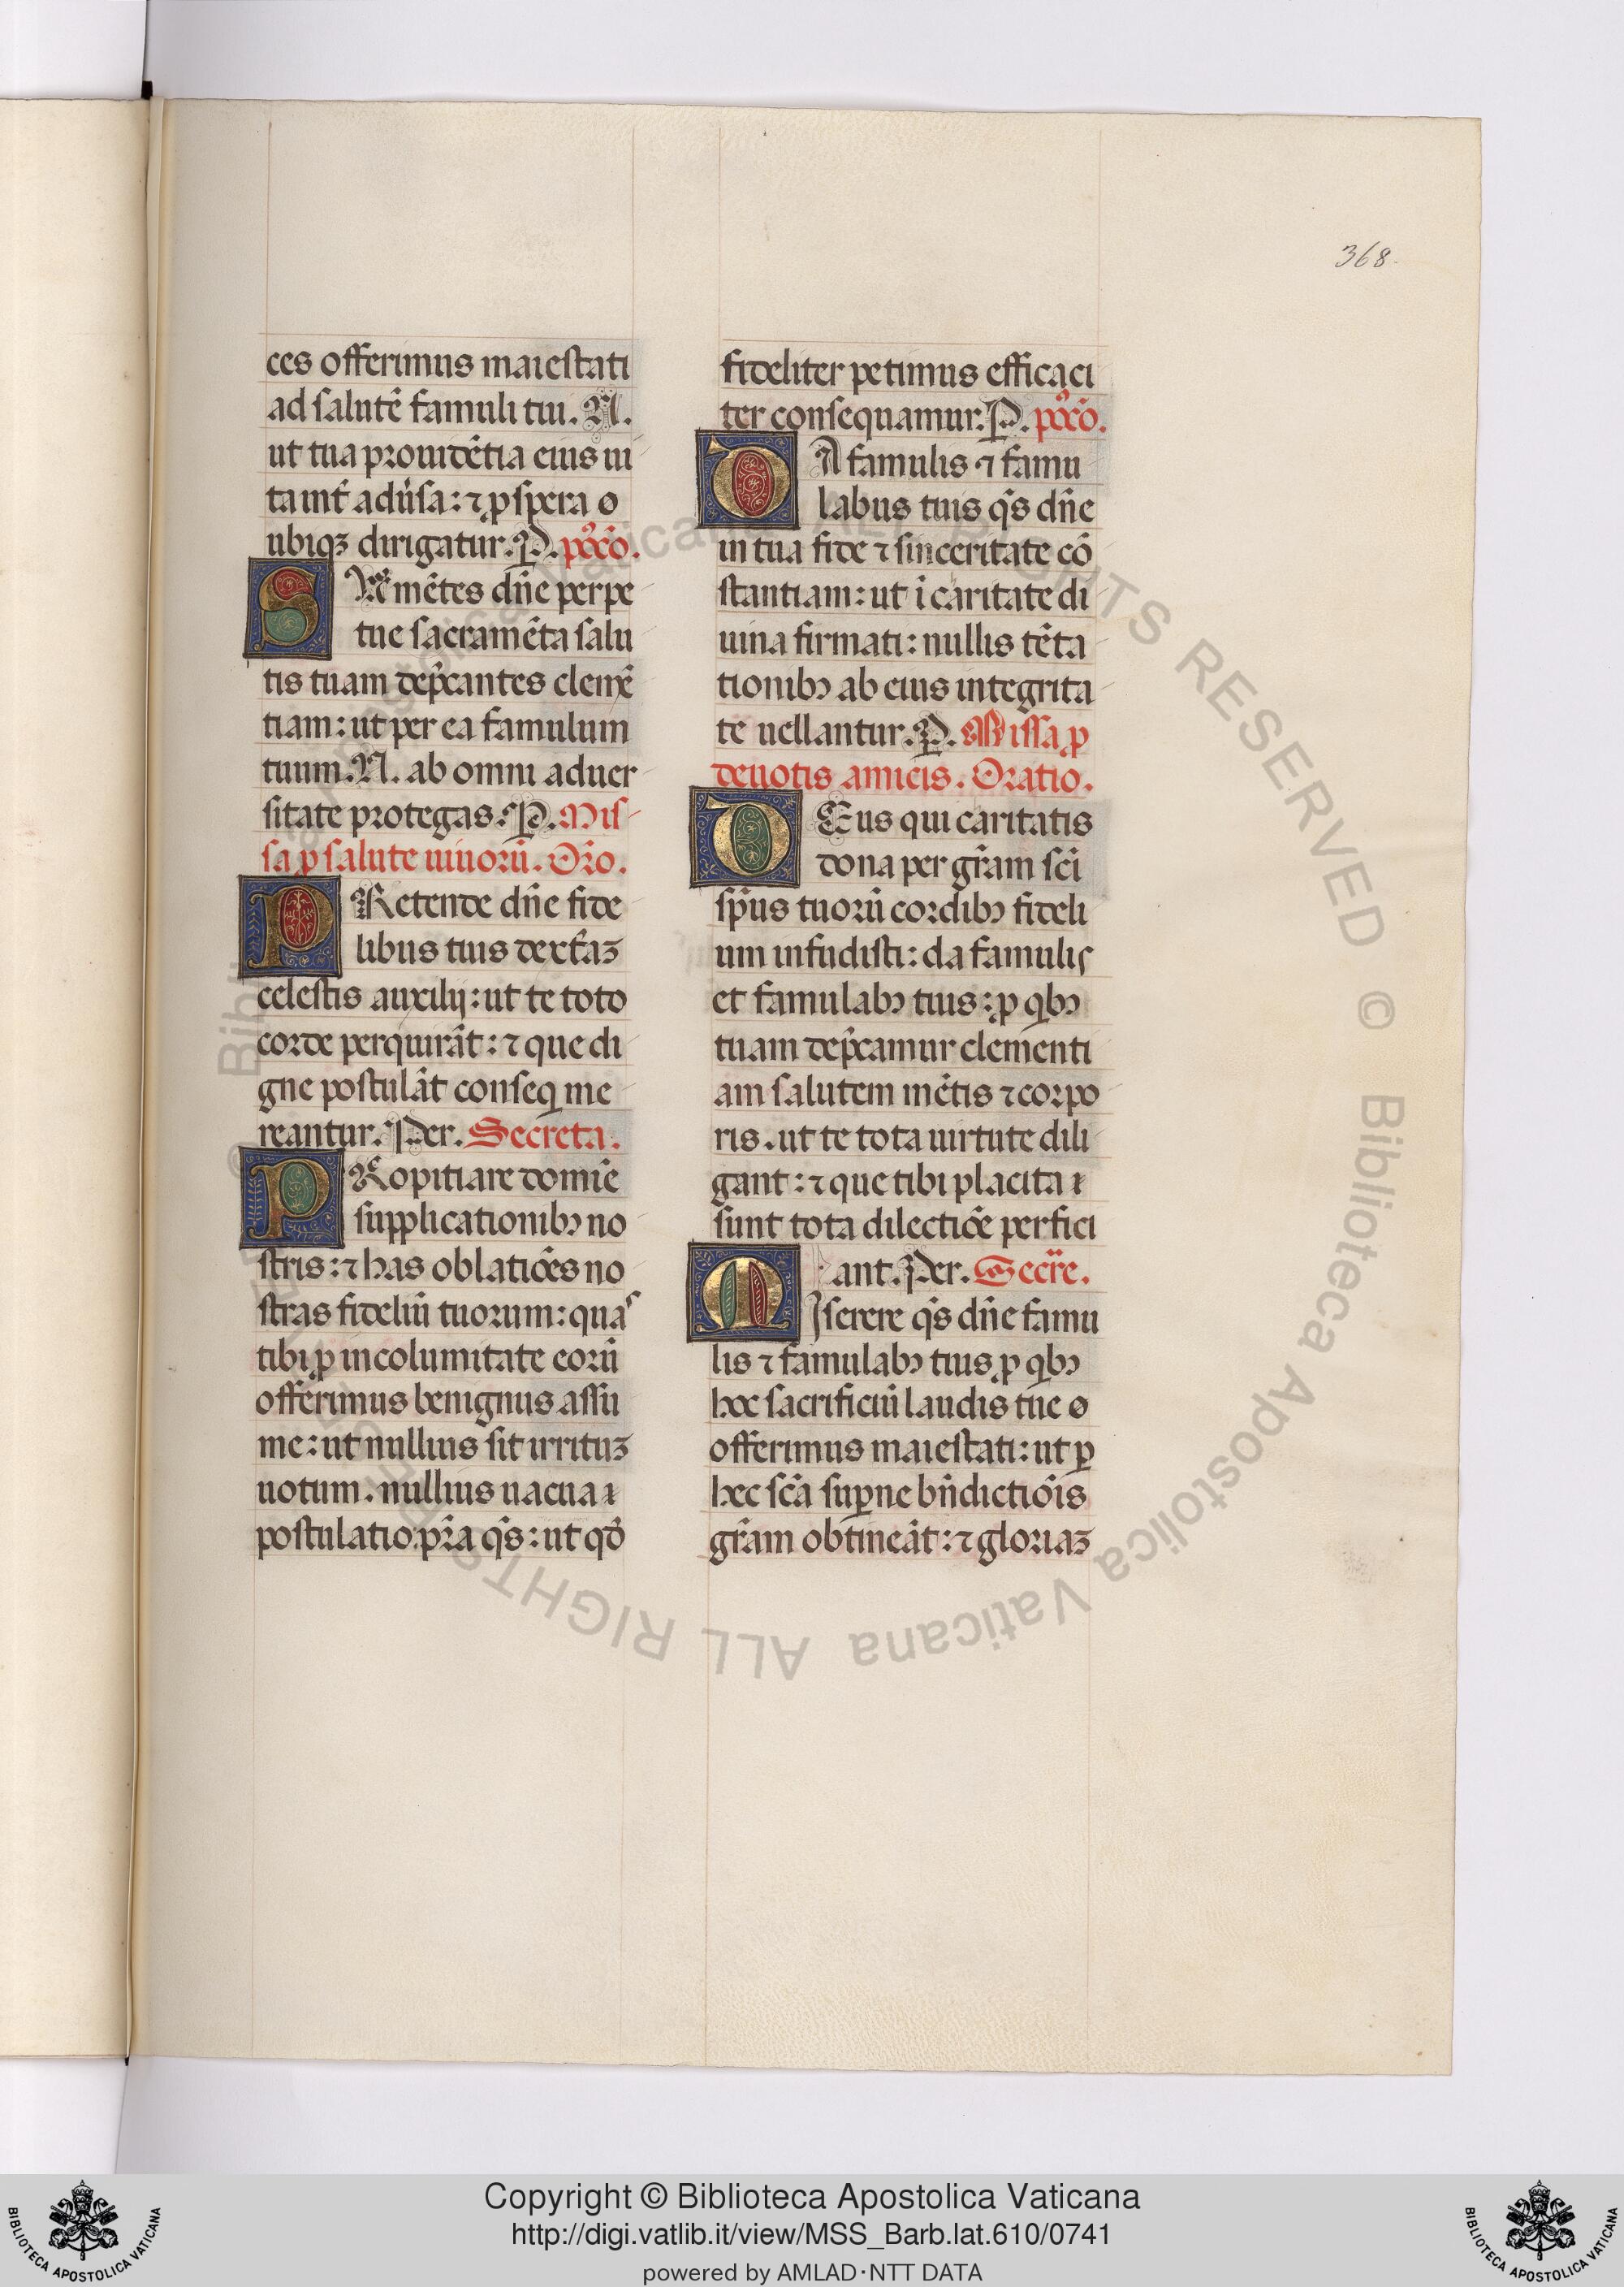 368.
ces offerimus maiestati
ad salutē famuli tui. N.
ut tua prouidētia eius ui
ta int̄ adūsa: ⁊ ꝓspera o
ubiqꝫ dirigatur. P. poꝯco.
SUmētes dn̄e perpe
tue sacramēta salu
tis tuam dep̄cantes clemē
tiam: ut per ea famulum
tuum. N. ab omni aduer
sitate protegas. P. Mis
sa ꝓ salute uiuoꝝ̄. Oro.
PRetende dn̄e fide
libus tuis dext̄aꝫ
celestis auxilij: ut te toto
corde perquirāt: ⁊ que di
gne postulāt conseq me
reantur. Per. Secreta.
PRopitiare domīe
supplicationibꝰ no
stris: ⁊ has oblatiōes no
stras fideliū tuorum: quas
tibi ꝓ incolumitate eorū
offerimus benignus assu
me: ut nullius sit irrituꝫ
uotum. nullius uacua ı
postulatio. pr̄a qs̄: ut qđ
fideliter petimus efficaci
ter consequamur. P. poꝯco.
DA famulis ⁊ famu
labus tuis qs̄ dn̄e
in tua fide ⁊ sinceritate cō
stantiam: ut ī caritate di
uina firmati: nullis tēta
tionibꝰ ab eius integrita
te uellantur. P. Missa ꝓ
deuotis amicis. Oratio.
DEus qui caritatis
dona per gr̄am sc̄i
sp̄us tuorū cordibꝰ fideli
um infudisti: da famulis
et famulabꝰ tuis: ꝓ qbꝰ
tuam dep̄camur clementi
am salutem mētis ⁊ corpo
ris. ut te tota uirtute dili
gant: ⁊ que tibi placita ı
sunt tota dilectiōe perfici
ant. Per. Secre.
MIserere qs̄ dn̄e famu
lis ⁊ famulabꝰ tuis ꝓ qbꝰ
hoc sacrificiū laudis tue o
offerimus maiestati: ut ꝑ
hec sc̄a suꝑne bn̄dictiōis
gr̄am obtineāt: ⁊ gloriaꝫ
© Biblioteca Apostolica Vaticana ALL RIGHTS RESERVED
Copyright © Biblioteca Apostolica Vaticana
http://digi.vatlib.it/view/MSS_Barb.lat.610/0741
powered by AMLAD·NTT DATA
BIBLIOTECA APOSTOLICA VATICANA
BIBLIOTECA APOSTOLICA VATICANA